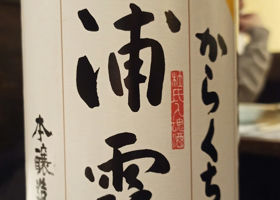 からくち
浦霞
本醸造